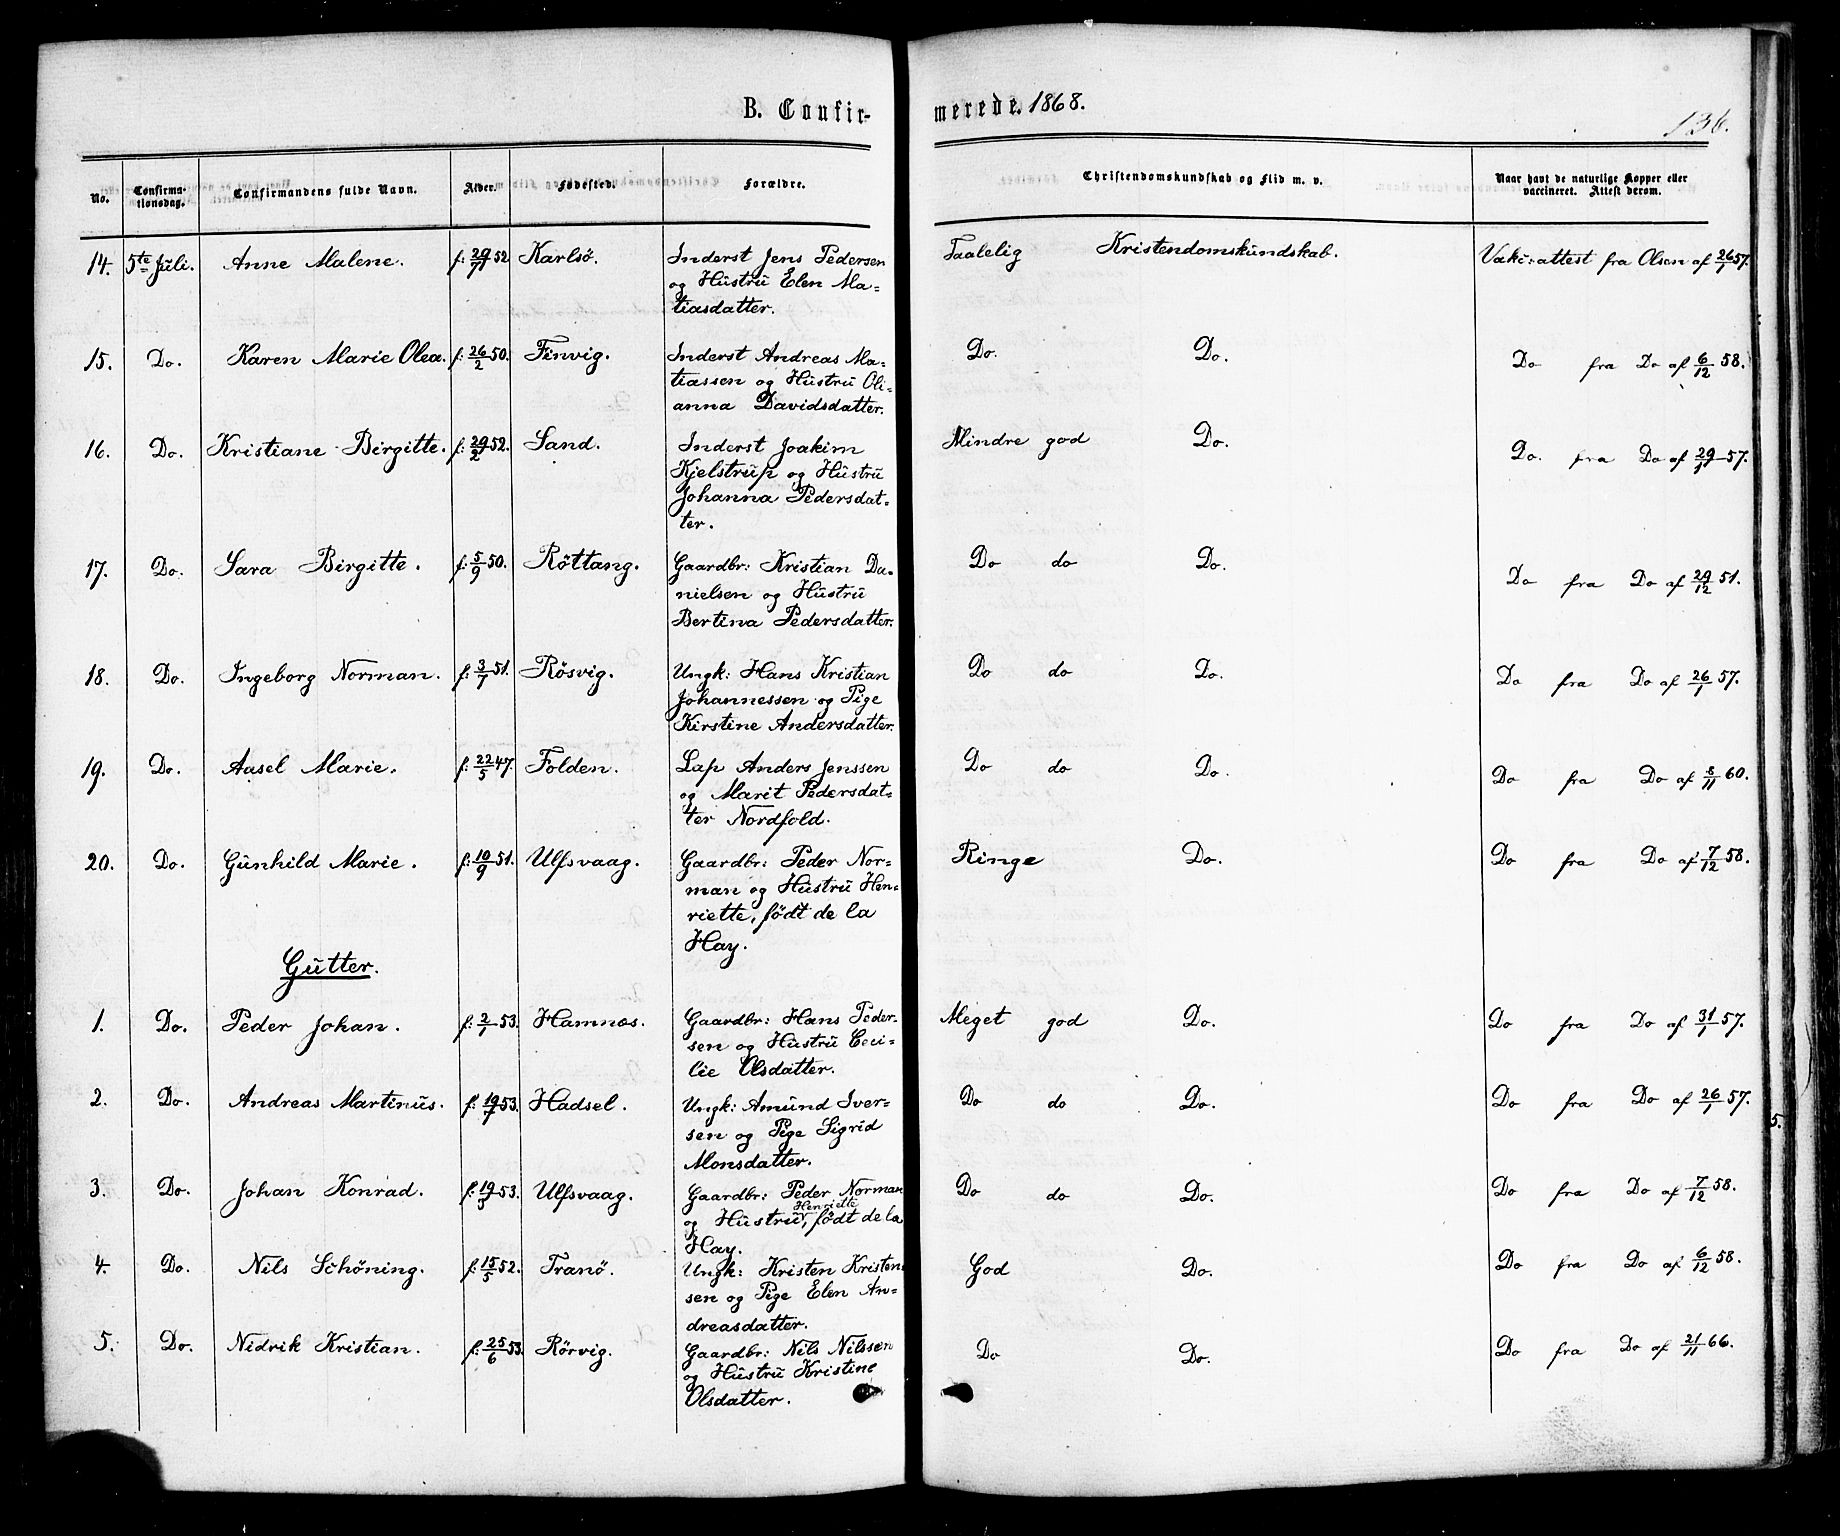 B. Confirmerede. 1868.
136.
No. Confirmationsdag. Confirmandens fulde Navn. Alder. Fødested. Forældre. Christendomskundskab og Flid m. v. Naar havt de naturlige Kopper eller vaccineret. Attest derom.
14. 5te Juli. Anne Malene. f: 29/7 52 Karlsö. Inderst Jens Pedersen Taalelig Kristendomskundskab. Vakc: attest fra Olsen af 26/1 57.
og Hustrü Elen Ma=
tiasdatter.
15. Do. Karen Marie Olea. f: 26/2 50. Finvig. Inderst Andreas Ma= Do. Do. Do fra Do af 6/12 58.
tiassen og Hustrü Oli=
anna Davidsdatter.
16. Do. Kristiane Birgitte. f: 29/2 52. Sand. Inderst Joakim Mindre god Do. Do. fra Do af 29/1 57.
Kjelstrup og Hüstrü
Johanna Pedersdat=
ter.
17. Do. Sara Birgitte. f: 5/9 50. Röttang. Gaardbr: Kristian Da= Do do Do. Do fra Do af 29/12 51.
nielsen og Hüstrü
Bertina Pedersdatter.
18. Do. Ingeborg Norman. f: 3/1 51. Rösvig. Ungk: Hans Kristian Do do Do. Do fra Do af 26/1 57.
Johannessen og Pige
Kirstine Andersdatter.
19. Do. Aasel Marie. f: 22/5 47. Folden. Lap Anders Jenssen Do do Do. Do fra Do af 8/11 60.
og Marit Pedersdat=
ter Nordfold.
20. Do. Günhild Marie. f: 10/9 51. Ulfsvaag. Gaardbr: Peder Nor= Ringe Do. Do fra Do af 7/12 58.
man og Hüstrü Hen=
riette, födt de la
Hay.
Gütter.
1. Do. Peder Johan. f: 2/1 53. Hamnæs. Gaardbr: Hans Peder= Meget god Do. Do fra Do af 31/1 57.
sen og Hüstrü Ceci=
lie Olsdatter.
2. Do. Andreas Martinüs. f: 19/7 53. Hadsel. Ungk: Amünd Iver= Do do Do. Do fra Do af 26/1 57.
sen og Pige Sigrid
Monsdatter.
3. Do. Johan Konrad. f: 19/3 53. Ulfsvaag. Gaardbr: Peder Norman Do do Do. Do fra Do af 7/12 58.
og Hüstrü Henriette, födt de la
Hay.
4. Do. Nils Schöning. f: 15/5 52. Tranö. Ungk: Kristen Kristen= God Do. Do fra Do af 6/12 58.
sen og Pige Elen An=
dreasdatter.
5. Do. Nidrik Kristian. f: 25/6 53. Rörvig. Gaardbr: Nils Nilssen Do Do. Do fra Do af 21/11 66.
og Hüstrü Kristine
Olsdatter.
5.